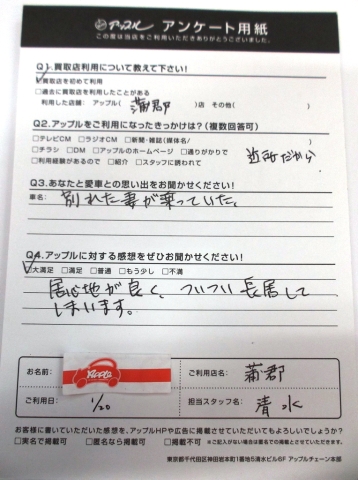 アップル アンケート用紙
この度は当店をご利用いただきありがとうございました。
Q1.買取店利用について教えて下さい!
□買取を初めて利用
□過去に買取を利用したことがある
利用した店舗: アップル( 蒲郡 )店 その他( )
Q2.アップルをご利用になったきっかけは?(複数回答可)
□テレビCM □ラジオCM □新聞・雑誌(媒体名/ )
□チラシ □DM □アップルのホームページ □通りがかりで
□利用経験があるので □紹介 □スタッフに誘われて
近所だから
Q3.あなたと愛車との思い出をお聞かせください!
車名:
別れた妻が乗っていた。
Q4.アップルに対する感想をぜひお聞かせください!
□大満足 □満足 □普通 □もう少し □不満
居心地が良く、ついつい長居して
しまいます。
お名前:
Apple
ご利用店名: 蒲郡
ご利用日: 1/20
担当スタッフ名: 清水
お客様に書いていただいた感想を、アップルHPや広告に掲載させていただいてもよろしいでしょうか?
□実名で掲載可 □匿名なら掲載可 □掲載不可 ※ご記入がない場合は匿名での掲載とさせていただきます。
東京都千代田区神田岩本町1番地5清水ビル6F アップルチェーン本部